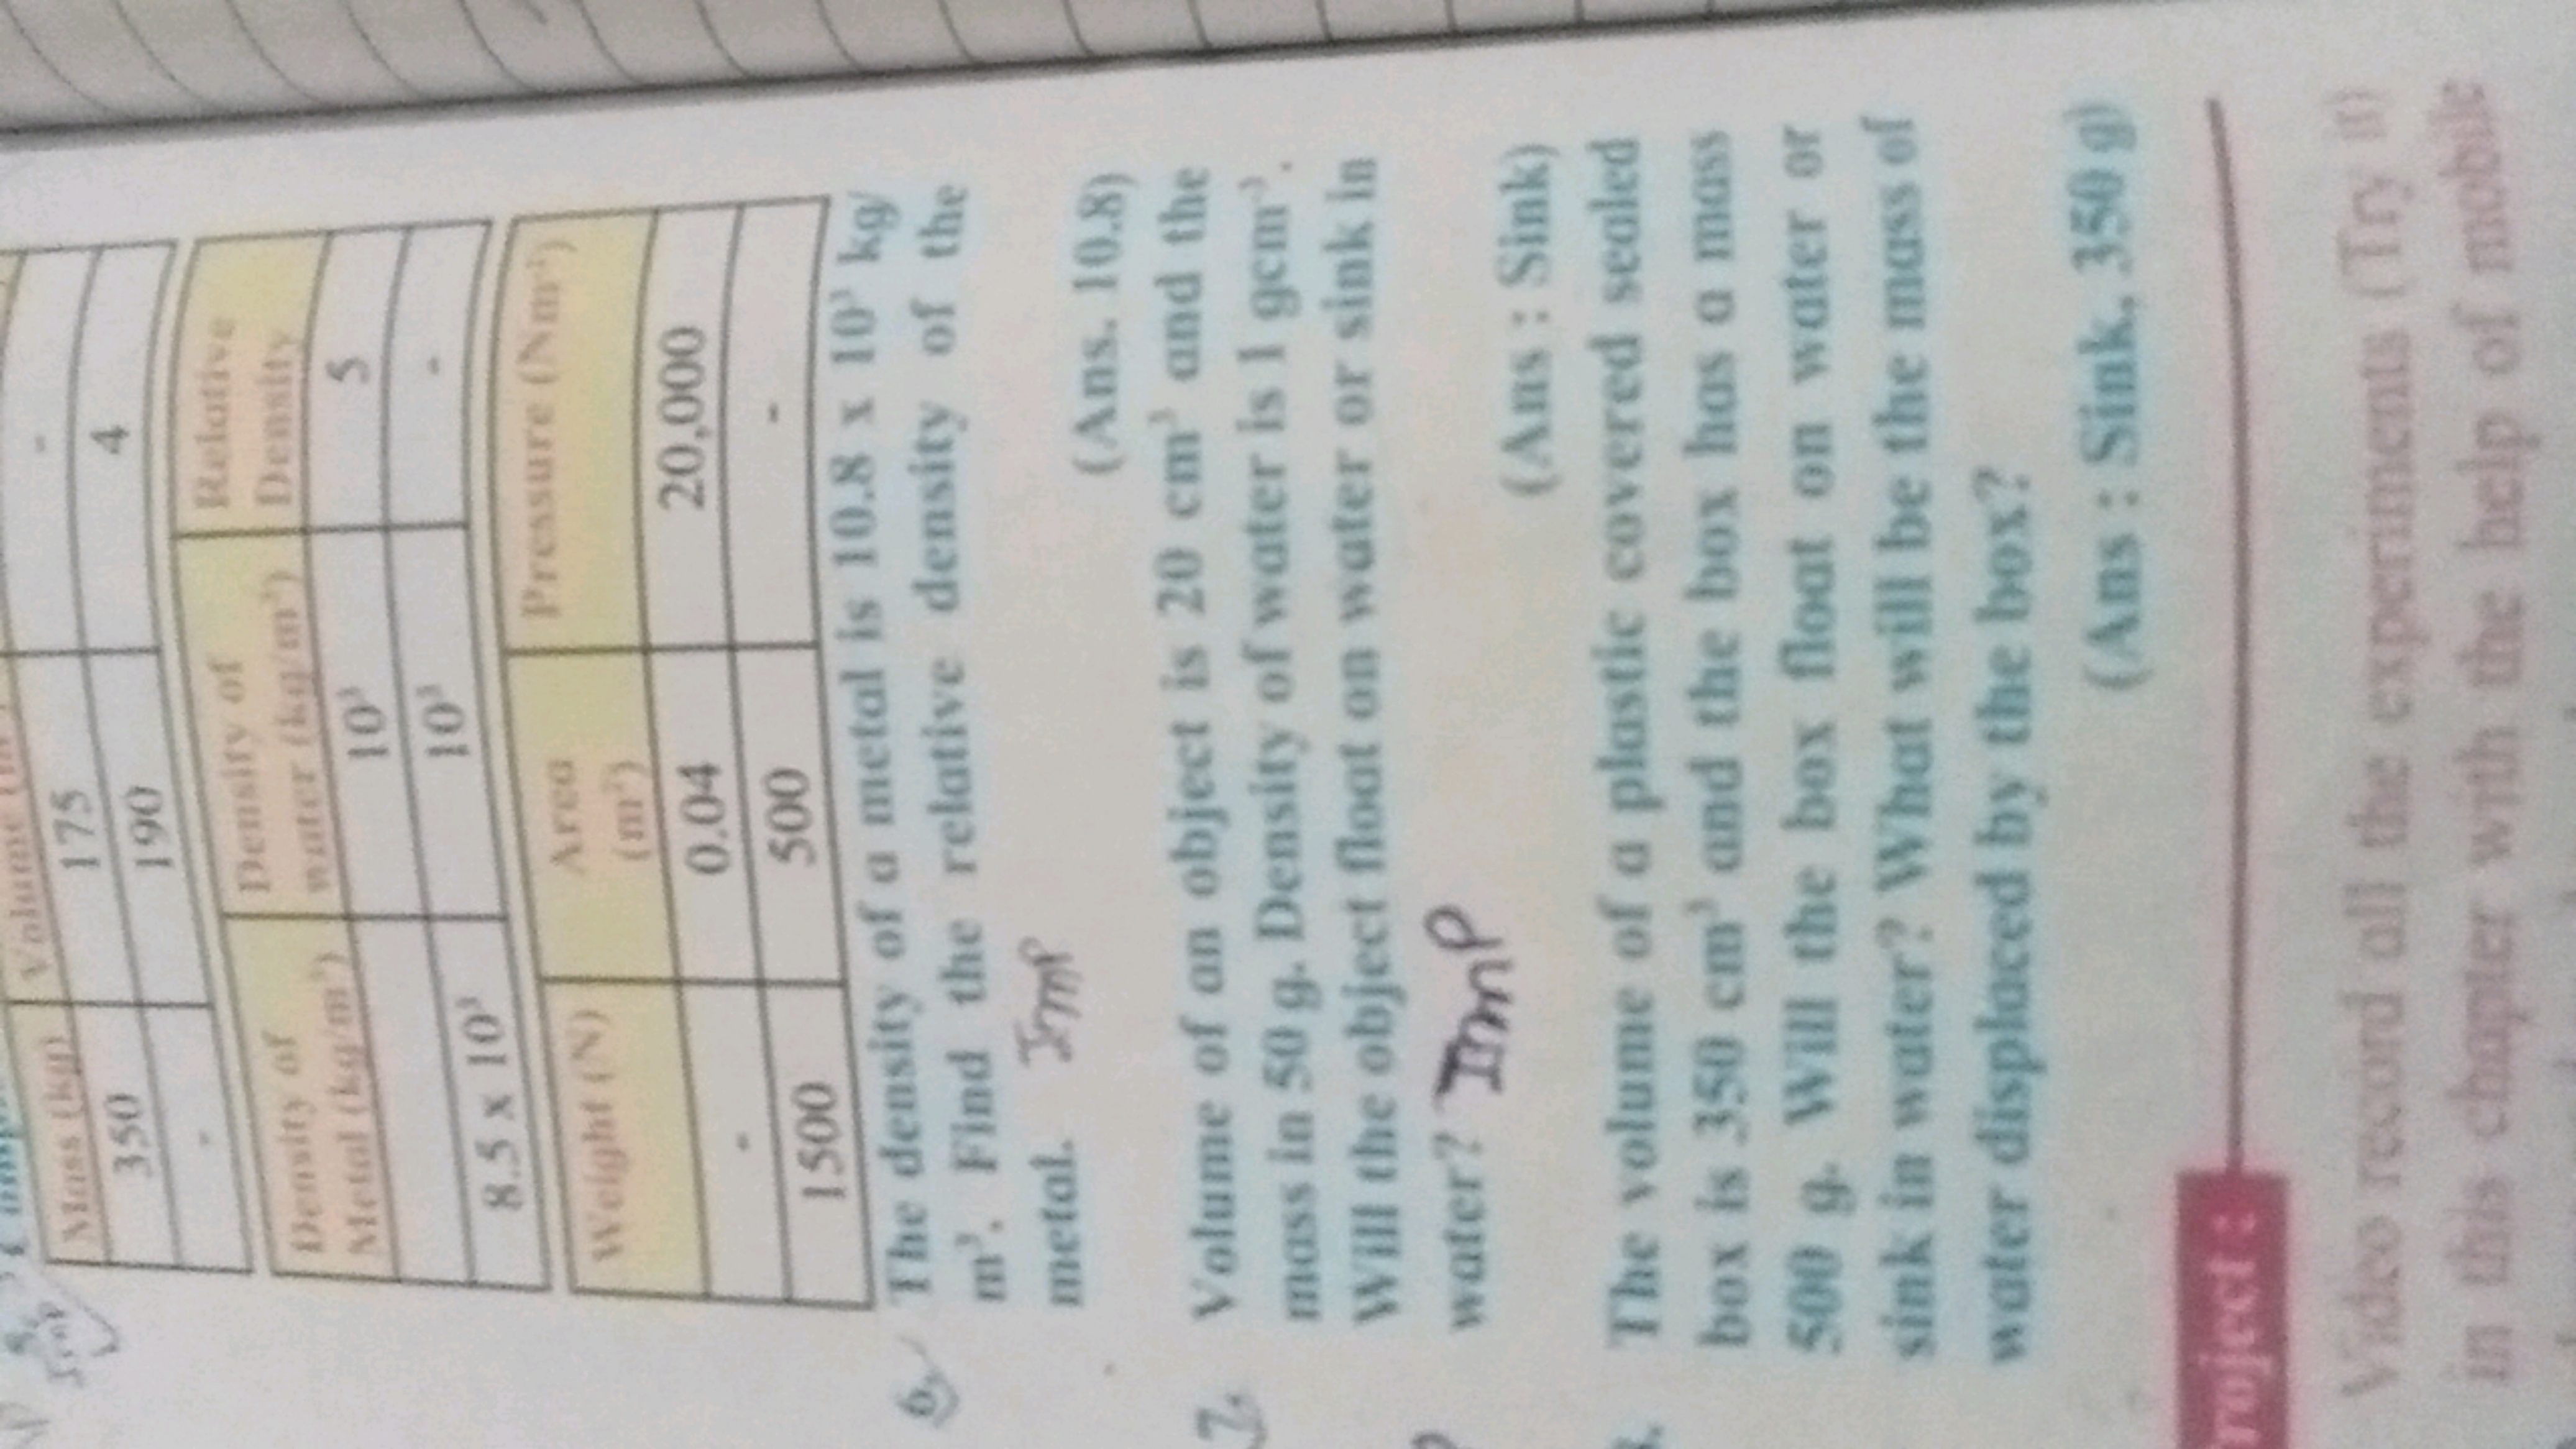 Mass (kg) Volume
350 175 -
- 190 4
Density of Metal (kg/m³) Density of water (kg/m³) Relative Density
10³ 5
8.5 x 10³ 10³ -
Weight (N) Area (m²) Pressure (Nm⁻²)
- 0.04 20,000
1500 500 -
6. The density of a metal is 10.8 x 10³ kg/
m³. Find the relative density of the
metal. Imp
(Ans. 10.8)
7. Volume of an object is 20 cm³ and the
mass in 50 g. Density of water is 1 gcm⁻³.
Will the object float on water or sink in
water? Imp
(Ans : Sink)
The volume of a plastic covered sealed
box is 350 cm³ and the box has a mass
500 g. Will the box float on water or
sink in water? What will be the mass of
water displaced by the box?
(Ans : Sink, 350 g)
roject :
Video record all the experiments (Try it)
in this chapter with the help of mobile